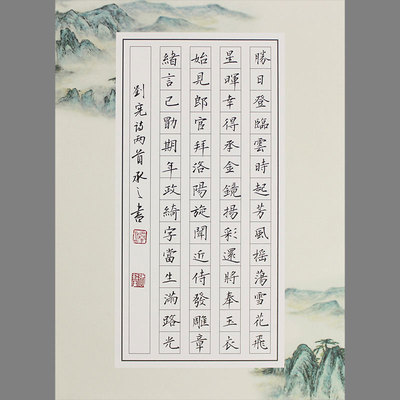 勝日登臨雲時起芳風摇蕩雪花飛
呈暉幸得承金鏡揚彩還將奉玉衣
始見郎官拜洛陽旋聞近侍發雕章
緒言已勖期年政綺字當生滿路光
劉宪诗两首承之書